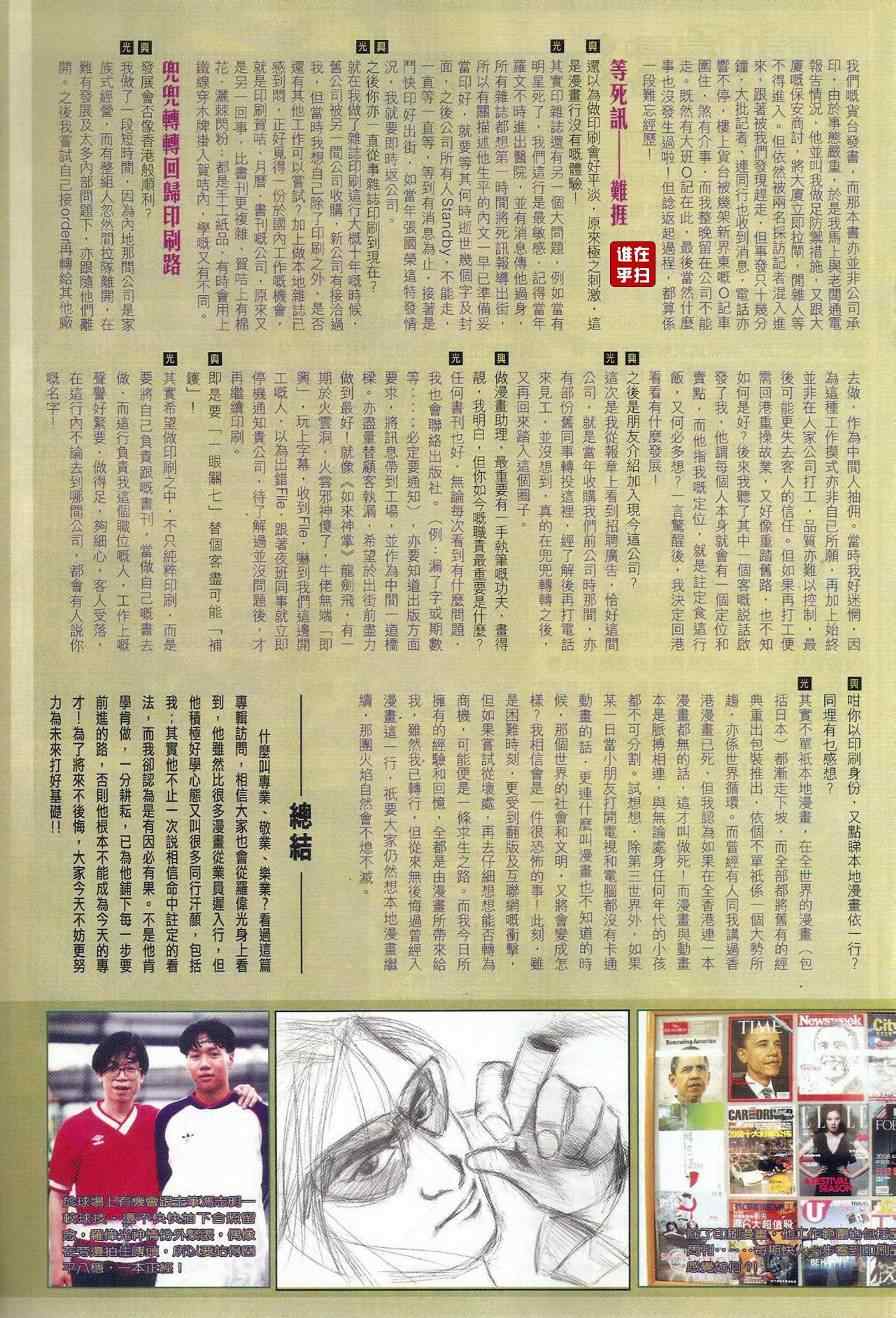 我們嘅貨台發書，而那本書亦並非公司承
印，由於事態嚴重，於是我馬上與老闆通電
報告情況，他並叫我做足防禦措施，又跟大
廈嘅保安商討，將大廈立即拉閘，閒雜人等
不得進入。但依然被兩名採訪記者混入進
來，跟著被我們發現趕走，但事發只十幾分
鐘，大批記者，連同行也收到消息，電話亦
響不停，樓上貨台被幾架新界東嘅O記車
團住，煞有介事，而我整晚留在公司不能
走。既然有大班O記在此，最後當然什麼
事也沒發生過啦！但諗返起過程，都算係
一段難忘經歷！
等死訊——難捱
誰在
乎扫
興 還以為做印刷會好平淡，原來極之刺激，這
是漫畫行沒有嘅體驗！
光 其實印雜誌還有另一個大問題，例如當有
明星死了，我們這行是最敏感，記得當年
羅文不時進出醫院，並有消息傳他過身，
所有雜誌都想第一時間將死訊報導出街，
所以有關描述他生平的內文一早已準備妥
當印好，就要等其何時逝世幾個字及封
面，之後公司所有人Standby，不能走，
一直等一直等，等到有消息為止，接著是
鬥快印好出街，如當年張國榮這特發情
況，我就要即時返公司。
興 之後你亦一直從事雜誌印刷到現在？
光 就在我做了雜誌印刷這行大概十年嘅時候，
舊公司被另一間公司收購，新公司有接洽過
我，但當時我想自己除了印刷之外，是否
還有其他工作可以嘗試？加上做本地雜誌已
感到悶，正好覓得一份於國內工作嘅機會，
就是印刷賀咭、月曆、書刊嘅公司，原來又
是另一回事，比書刊更複雜，賀咭上有棉
花、灑辣閃粉，都是手工紙品，有時會用上
鐵線穿木牌掛人賀咭內，學嘅又有不同。
兜兜轉轉回歸印刷路
興 發展會否像香港般順利？
光 我做了一段短時間，因為內地那間公司是家
族式經營，而有整組人忽然間拉隊離開，在
難有發展及太多內部問題下，亦跟隨他們離
開。之後我嘗試自己接order再轉給其他廠
去做，作為中間人抽佣。當時我好迷惘，因
為這種工作模式亦非自己所願，再加上始終
並非在人家公司打工，品質亦難以控制，最
後可能更失去客人的信任。但如果再打工便
需回港重操故業，又好像重踏舊路，也不知
如何是好？後來我聽了其中一個客嘅說話啟
發了我，他謂每個人本身就會有一個定位和
賣點，而他指我嘅定位，就是註定食這行
飯，又何必多想？一言驚醒後，我決定回港
看看有什麼發展！
興 之後是朋友介紹加入現今這公司？
光 這次是我從報章上看到招聘廣告，恰好這間
公司，就是當年收購我們前公司時那間，亦
有部份舊同事轉投這裡，經了解後再打電話
來見工，並沒想到，真的在兜兜轉轉之後，
又再回來踏入這個圈子。
興 做漫畫助理，最重要有一手執筆嘅功夫，畫得
靚，我明白，但你如今嘅職責最重要是什麼？
光 任何書刊也好，無論每次看到有什麼問題，
我也會聯絡出版社。（例：漏了字或期數
等……必定要通知），亦要知道出版方面
要求，將訊息帶到工場，並作為中間一道橋
樑。亦盡量替顧客執漏，希望於出街前盡力
做到最好！就像《如來神掌》龍劍飛，有一
期於火雲洞，火雲邪神傻了，牛佬無端「即
興」，玩上字幕，收到File，嚇到我們這邊開
工嘅人，以為出錯File，跟著夜班同事就立即
停機通知貴公司，待了解過並沒問題後，才
再繼續印刷。
興 即是要「一眼關七」替個客盡可能「補
鑊」！
光 其實希望做印刷之中，不只純粹印刷，而是
要將自己負責跟嘅書刊，當做自己嘅書去
做，而這行負責我這個職位嘅人，工作上嘅
聲譽好緊要，做得足，夠細心，客人受落，
在這行內不論去到哪間公司，都會有人說你
嘅名字！
興 咁你以印刷身份，又點睇本地漫畫依一行？
同埋有乜感想？
光 其實不單衹本地漫畫，在全世界的漫畫（包
括日本）都漸走下坡，而全部都將舊有的經
典重出包裝推出，依個不單衹係一個大勢所
趨，亦係世界循環。而曾經有人同我講過香
港漫畫已死，但我認為如果在全香港連一本
漫畫都無的話，這才叫做死！而漫畫與動畫
本是脈搏相連，與無論處身任何年代的小孩
都不可分割。試想想，除第三世界外，如果
某一日當小朋友打開電視和電腦都沒有卡通
動畫的話，更連什麼叫漫畫也不知道的時
候，那個世界的社會和文明，又將會變成怎
樣？我相信會是一件很恐怖的事！此刻，雖
是困難時刻，更受到翻版及互聯網嘅衝擊，
但如果嘗試從壞處，再去仔細想想能否轉為
商機，可能便是一條求生之路。而我今日所
擁有的經驗和回憶，全都是由漫畫所帶來給
我，雖然我已轉行，但從來無後悔過曾經入
漫畫這一行，衹要大家仍然想本地漫畫繼
續，那團火焰自然會不熄不滅。
總結
什麼叫專業、敬業、樂業？看過這篇
專輯訪問，相信大家也會從羅偉光身上看
到，他雖然比很多漫畫從業員遲入行，但
他積極好學心態又叫很多同行汗顏，包括
我；其實他不止一次說相信命中註定的看
法，而我卻認為是有因必有果。不是他肯
學肯做，一分耕耘，已為他鋪下每一步要
前進的路，否則他根本不能成為今天的專
才！為了將來不後悔，大家今天不妨更努
力為未來打好基礎!!
於球場上有機會跟主筆馮志明一
較球技，還不快快拍下合照留
念，羅偉光神情份外緊張，偶像
在旁還拍住膊頭，所以要站得四
平八穩，一本正經！
Newsweek
TIME
CAR&DRIVER
ELLE
FESTIVAL
SEASON